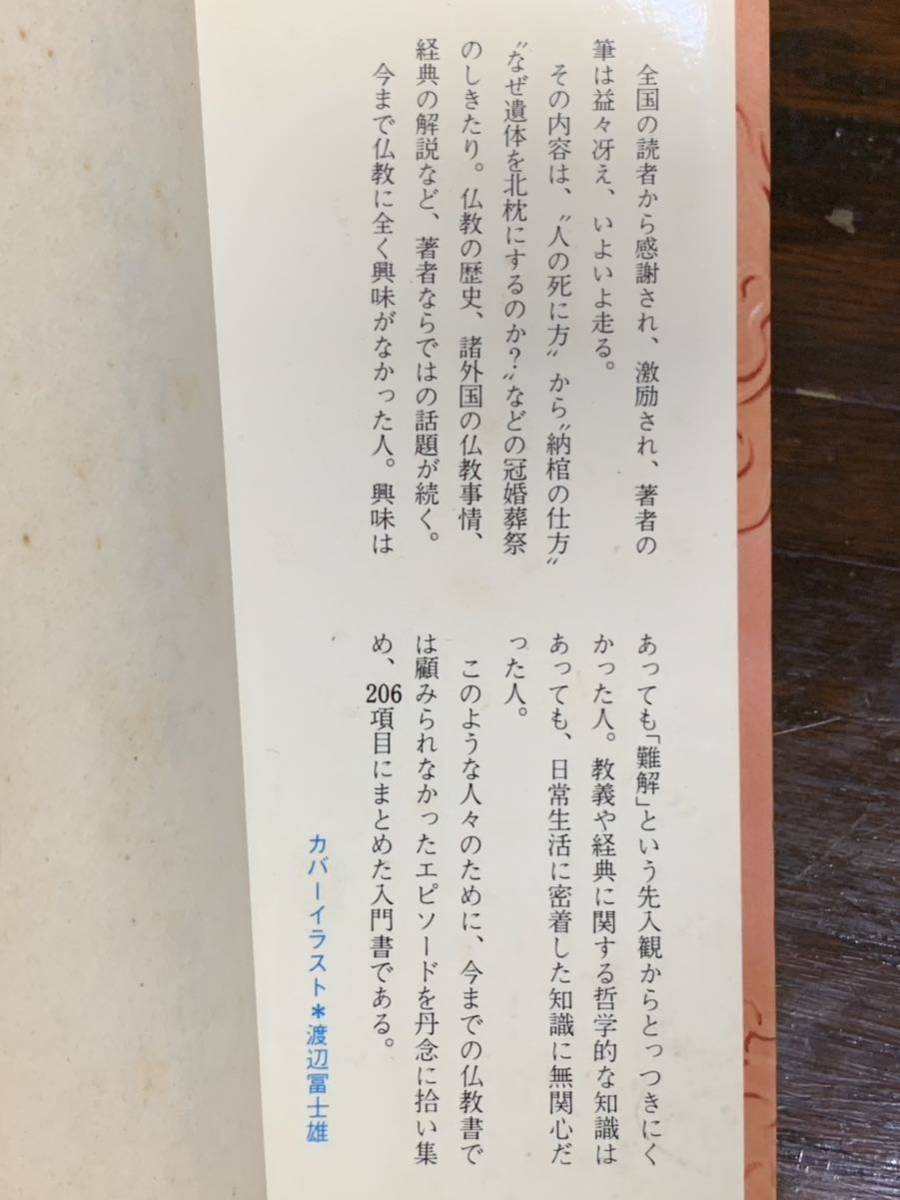 全国の読者から感謝され、激励され、著者の
筆は益々冴え、いよいよ走る。
その内容は、〝人の死に方〟から〝納棺の仕方〟
〝なぜ遺体を北枕にするのか?〟などの冠婚葬祭
のしきたり。仏教の歴史、諸外国の仏教事情、
経典の解説など、著者ならではの話題が続く。
今まで仏教に全く興味がなかった人。興味は
あっても「難解」という先入観からとっつきにく
かった人。教義や経典に関する哲学的な知識は
あっても、日常生活に密着した知識に無関心だ
った人。
このような人々のために、今までの仏教書で
は顧みられなかったエピソードを丹念に拾い集
め、206項目にまとめた入門書である。
カバーイラスト*渡辺冨士雄